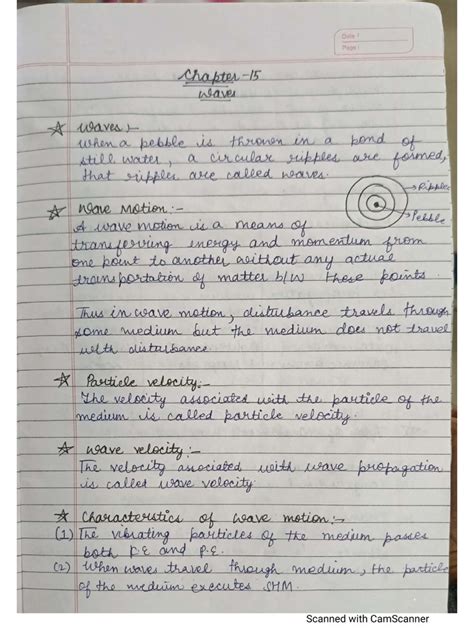 Date
Page
Chapter-15
Waves
☆ Waves :-
When a pebble is thrown in a pond of
still water, a circular ripples are formed,
that ripples are called waves.
→Ripples
→Pebble
☆ Wave Motion :-
A wave motion is a means of
transferring energy and momentum from
one point to another without any actual
transportation of matter b/w these points.
Thus in wave motion, disturbance travels through
some medium but the medium does not travel
with disturbance
☆ Particle velocity :-
The velocity associated with the particle of the
medium is called particle velocity.
☆ Wave velocity :-
The velocity associated with wave propagation
is called wave velocity
☆ Characteristics of wave motion :-
(1) The vibrating particles of the medium passes
both K.E and P.E.
(2) When waves travel through medium, the particle
of the medium executes SHM.
Scanned with CamScanner